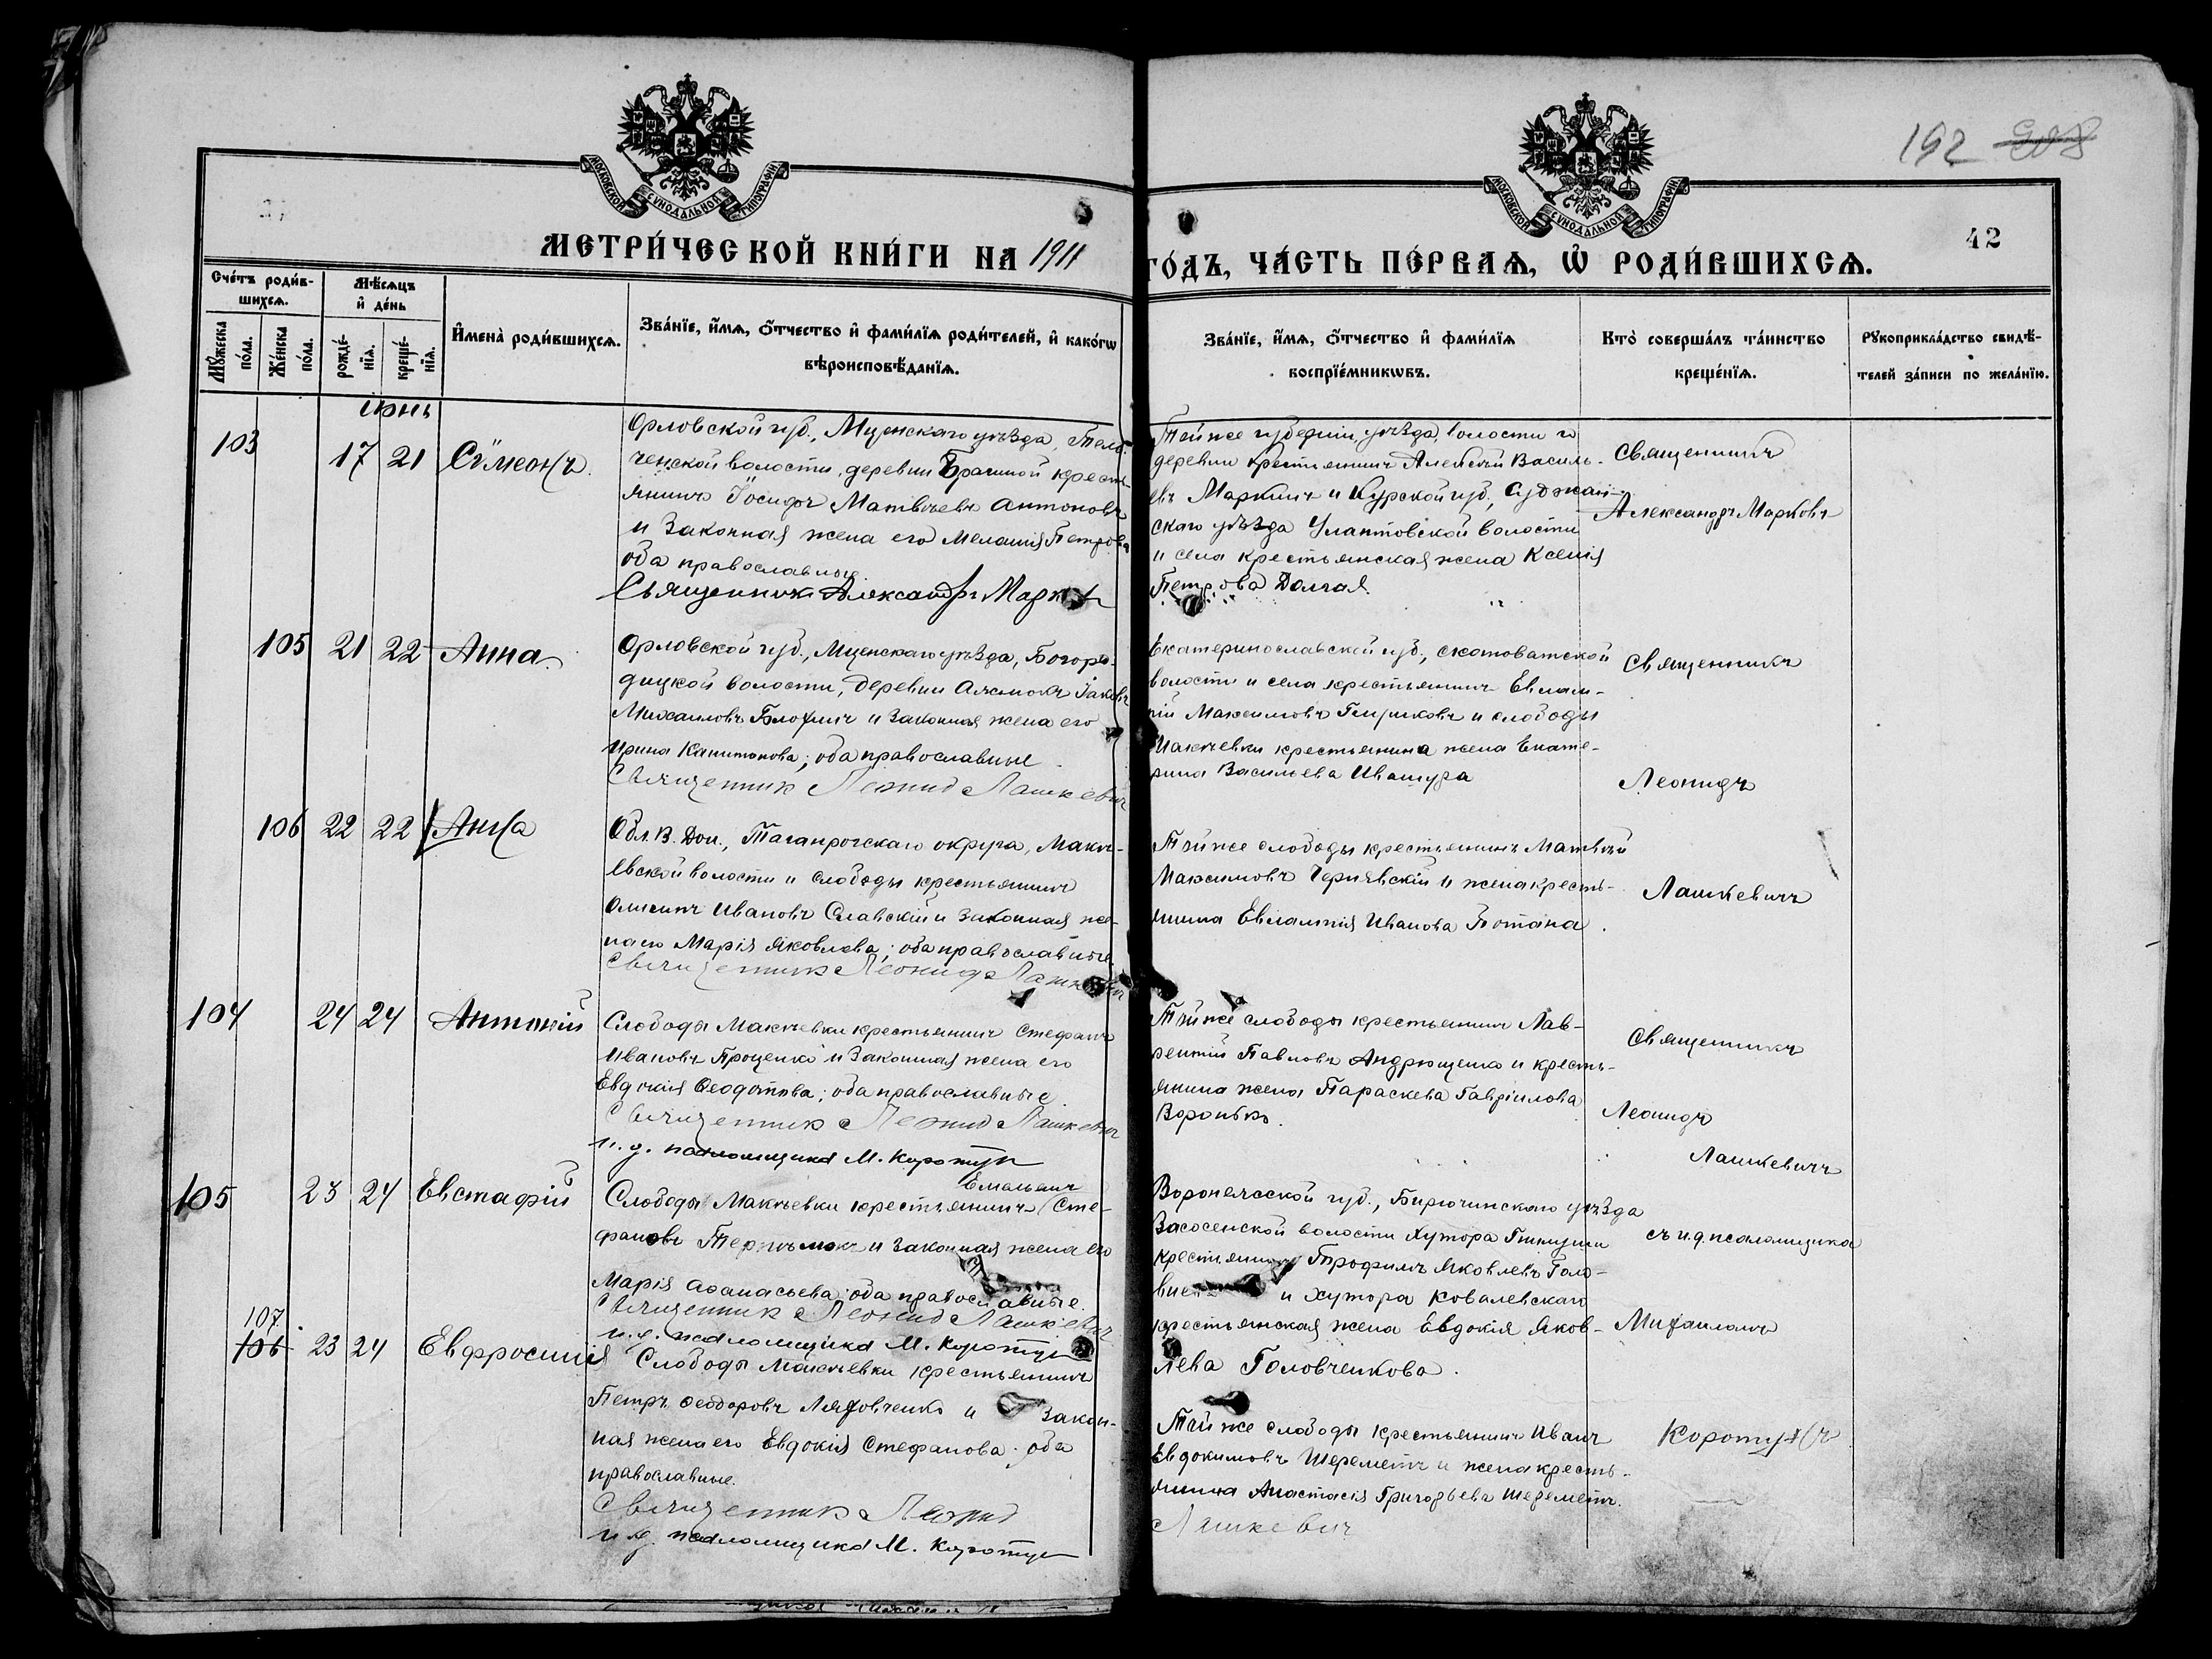 192
МОСКОВСКОЙ СУНОДАЛЬНОЙ ТИПОГРАФІИ
МОСКОВСКОЙ СУНОДАЛЬНОЙ ТИПОГРАФІИ
42
МЕТРИ́ЧЕСКОЙ КНИ́ГИ НА 1911
ГО́ДЪ, ЧА́СТЬ ПЕ́РВАѦ, Ѡ РОДИ́ВШИХСѦ.
Сче́тъ роди́в-
шихсѧ.
Мꙋжеска по́ла.
Же́нска по́ла.
Мѣ́сѧцъ
и҆ де́нь
рожде́-
нїѧ.
креще́-
нїѧ.
И҆мена̀ роди́вшихсѧ.
Зва́нїе, и҆́мѧ, ѻ҆́тчество и҆ фами́лїѧ роди́телей, и҆ како́гѡ
вѣроисповѣ́данїѧ.
Зва́нїе, и҆́мѧ, ѻ҆́тчество и҆ фами́лїѧ
воспрїе́мникѡвъ.
Кто̀ соверша́лъ та́инство
креще́нїѧ.
Рꙋкоприкла́дство свидѣ́-
телей за́писи по жела́нїю.
іюнь
103
17 21 Сѵмеонъ.
Орловской губ., Мценскаго уѣзда, Тель-
ченской волости, деревни крестъ-
янинъ Іосифъ Матвѣевъ Антоновъ
и законная жена его Меланія Петрова
оба православные.
Священникъ Александръ Марковъ
Той же губерніи, уѣзда, волости и
деревни крестьянинъ Алексѣй Василь-
евъ Маркинъ и Курской губ., Суджан-
скаго уѣзда Улантовской волости
и села крестьянская жена Ксенія
Петрова Долгая.
Священникъ
Александръ Марковъ
105 21 22 Анна.
Орловской губ., Мценскаго уѣзда, Богоро-
дицкой волости, деревни Іаковъ
Михаиловъ Блохинъ и законная жена его
Ирина Капитонова; оба православные.
Священник Леонид Лашкевич
Екатеринославской губ., Скотоватской
волости и села крестьянинъ Евлам-
пій Максимовъ и слободы
Макѣевки крестьянина жена Екате-
рина Васильева Ивашура
Священникъ
Леонидъ
Лашкевичъ
106 22 22 Анна
Обл. В. Дон., Таганрогскаго округа, Макѣ-
евской волости и слободы крестьянинъ
Осипъ Ивановъ Славскій и законная же-
на его Марія Яковлева; оба православные.
Священник Леонид Лашкевич
Той же слободы крестьянинъ Матвѣй
Максимовъ Чернявскій и жена кресть-
янина Евлампія Иванова Потана.
104
24 24 Антоній
Слободы Макѣевки крестьянинъ Стефанъ
Ивановъ Проценко и законная жена его
Евдокія Ѳеодотова; оба православные.
Священник Леонид Лашкевич
и. д. псаломщика М. Коротун
Той же слободы крестьянинъ Лав-
рентій Павловъ Андрющенко и кресть-
янина жена Параскева Гавріилова
Воронько.
Священникъ
Леонидъ
Лашкевичъ
105
23 24 Евстафій
Емельянъ
Слободы Макѣевки крестьянинъ Сте-
фановъ и законная жена его
Марія Аѳанасьева; оба православные.
Священник Леонид Лашкевич
и. д. псаломщика М. Коротун
Воронежской губ., Бирюченскаго уѣзда
Засосенской волости хутора
крестьянинъ Трофимъ Яковлевъ Голо-
и хутора Ковалевскаго
крестьянская жена Евдокія Яков-
лева Головченкова.
съ и. д. псаломщика
Михаиломъ
Коротунъ
107.
106 23 24 Евфросинія
Слободы Макѣевки крестьянинъ
Петръ Ѳеодоровъ Ляховченко и закон-
ная жена его Евдокія Стефанова; оба
православные.
Священник Леонид
и. д. псаломщика М. Коротун
Той же слободы крестьянинъ Иванъ
Евдокимовъ Шереметъ и жена кресть-
янина Анастасія Григорьева Шереметъ.
Лашкевич